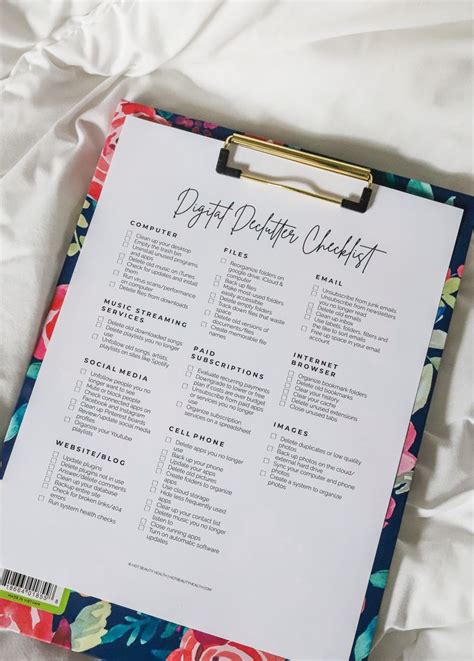 Digital Declutter Checklist
COMPUTER
Clean up your desktop
Empty the trash bin
Uninstall unused programs
and apps
Delete old music on iTunes
Check for updates and install
them
Run virus scans/performance
on computer
Delete files from downloads
MUSIC STREAMING
SERVICES
Delete old downloaded songs
Delete playlists you no longer
use
Unfollow old songs, artists,
playlists on sites like Spotify
SOCIAL MEDIA
Unfollow people you no
longer need to
Mute or block people
Check Facebook and Instagram
Connected apps
Clean up Pinterest boards
Renew/update social media
playlists
Organize your YouTube
WEBSITE/BLOG
Update plugins
Delete plugins not in use
Answer/delete comments
Clean up your database
Backup entire site
Check for broken links/404
errors
Run system health checks
FILES
Reorganize folders on
google drive, iCloud &
computer
Back up files
Make most used folders
easily accessible
Delete empty folders
Track down files that waste
space
Delete old versions of
documents
Create memorable file
names
PAID
SUBSCRIPTIONS
Evaluate recurring payments
Downgrade to lower or free
plan if costs are over budget
Unsubscribe from paid apps
or services you no longer
use
Organize subscription
services on a spreadsheet
CELL PHONE
Delete apps you no longer
use
Back up your phone
Update your apps
Delete old pictures
Create folders to organize
apps
Use cloud storage
Hide less frequently used
apps
Clear up your contact list
Delete music you no longer
listen to
Close running apps
Turn on automatic software
updates
EMAIL
Unsubscribe from junk emails
Unsubscribe from newsletters
you no longer read
Delete old emails
Clean up your email
Use labels, folders, filters and
the like to sort emails
Free up space in your email
account
INTERNET
BROWSER
Organize bookmark folders
Delete old bookmarks
Clear your history
Clear your cache
Close unused tabs
Remove unused extensions
IMAGES
Delete duplicates or low quality
photos
Back up photos on the cloud/
external hard drive
Sync your computer and phone
photos
Create a system to organize
photos
© HOT BEAUTY HEALTH | HOTBEAUTYHEALTH.COM
MADE IN VIETNAM